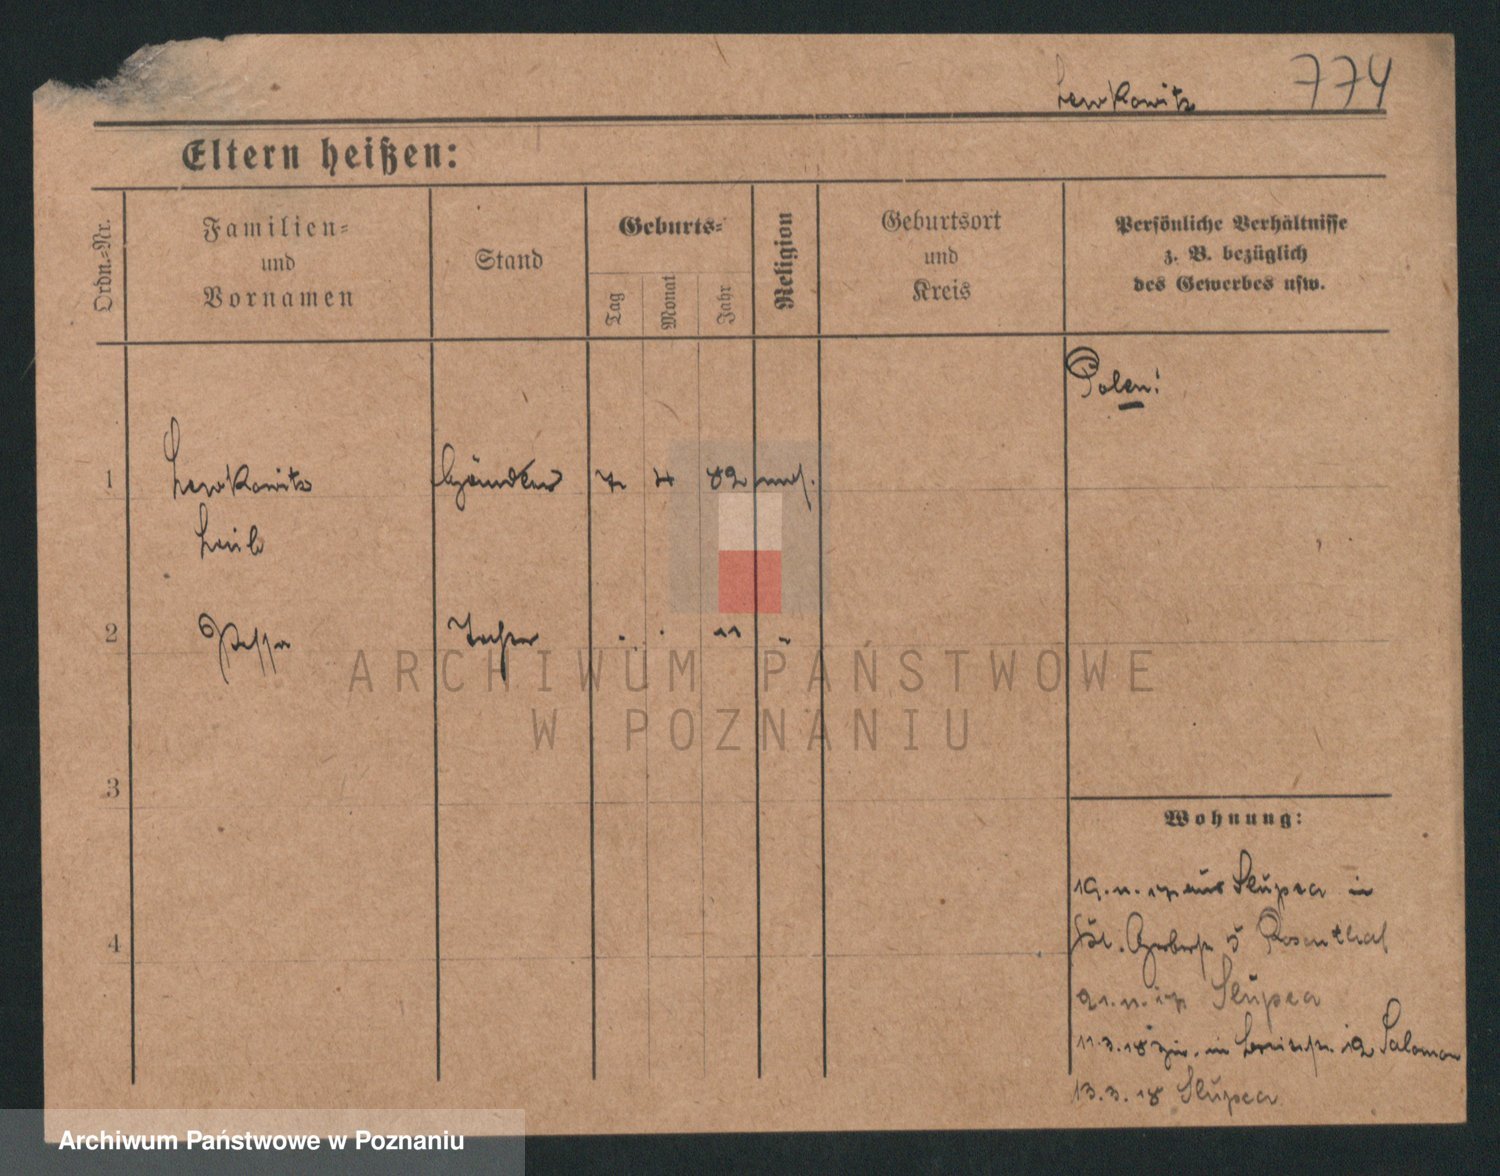 Lewkowitz 774
Eltern heißen:
Ordn.=Nr.
Familien=
und
Vornamen
Stand
Geburts=
Tag
Monat
Jahr
Religion
Geburtsort
und
Kreis
Persönliche Verhältnisse
z. B. bezüglich
des Gewerbes usw.
Polen!
1 Lewkowitz Händler 7 4 82 mos.
Leib
2 Pessa Tochter " "
ARCHIWUM PAŃSTWOWE
W POZNANIU
3
Wohnung:
4
19.11.17 aus Slupca in
Gerberstr 5 Rosenthal
21.11.17 Slupca
11.3.18 in 12 Salomon
13.3.18 Slupca
Archiwum Państwowe w Poznaniu